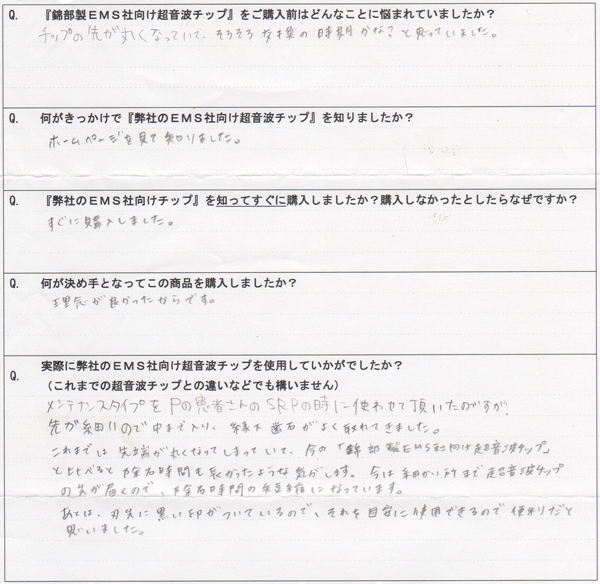 Q. 『錦部製ＥＭＳ社向け超音波チップ』をご購入前はどんなことに悩まれていましたか？
チップの先が丸くなっていて、そろそろ交換の時期かな？と思っていました。
Q. 何がきっかけで『弊社のＥＭＳ社向け超音波チップ』を知りましたか？
ホームページを見て知りました。
Q. 『弊社のＥＭＳ社向けチップ』を知ってすぐに購入しましたか？購入しなかったとしたらなぜですか？
すぐに購入しました。
Q. 何が決め手となってこの商品を購入しましたか？
理念が良かったからです。
Q. 実際に弊社のＥＭＳ社向け超音波チップを使用していかがでしたか？
（これまでの超音波チップとの違いなどでも構いません）
メンテナンスタイプをPの患者さんのSRPの時に使わせて頂いたのですが、
先が細いので中まで入り、縁下歯石がよく取れてきました。
これまでは先端が丸くなってしまっていて、今の「錦部製EMS社向け超音波チップ」
と比べると除石時間も長かったような気がします。今は細かい所まで超音波チップ
の先が届くので、除石時間の短縮になっています。
あとは、刃先に黒い印がついているので、それを目安に使用できるので便利だと
思いました。